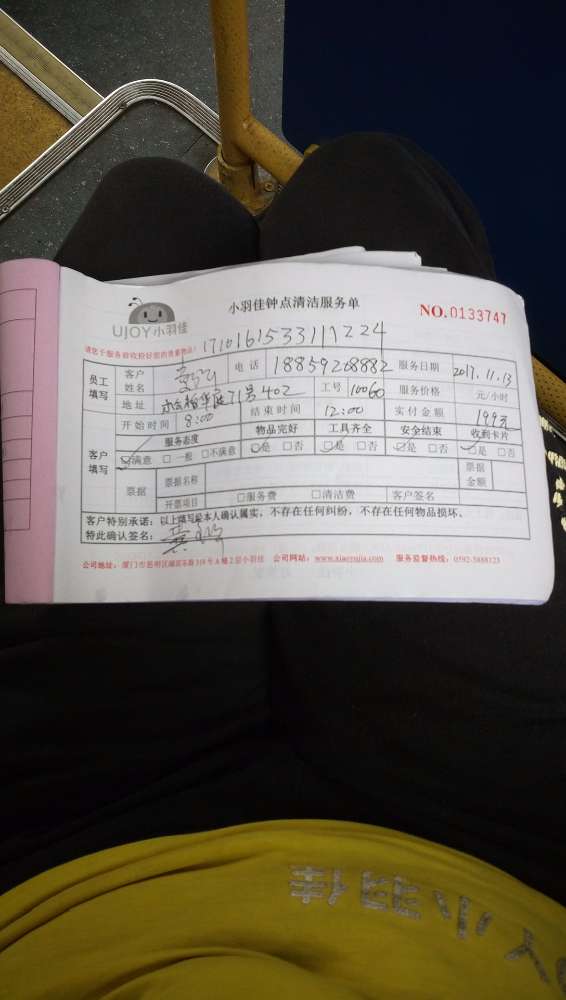 UJOY小羽佳
小羽佳钟点清洁服务单
NO.0133747
请您于服务前收拾好您的贵重物品!
171016153311224
员工填写 客户姓名 电话 18859268882 服务日期 2017.11.13
地址 71号402 工号 10060 服务价格 元/小时
开始时间 8:00 结束时间 12:00 实付金额 199元
客户填写 服务态度 物品完好 工具齐全 安全结束 收到卡片
☑满意 □一般 □不满意 ☑是 □否 ☑是 □否 ☑是 □否 ☑是 □否
票据 票据名称 票据金额
开票项目 □服务费 □清洁费 客户签名
客户特别承诺:以上填写经本人确认属实,不存在任何纠纷,不存在任何物品损坏,
特此确认签名:
公司地址:厦门市思明区湖滨东路319号A楼2层小羽佳 公司网站:www.xiaoyujia.com 服务监督热线:0592-5888123
Y小羽佳